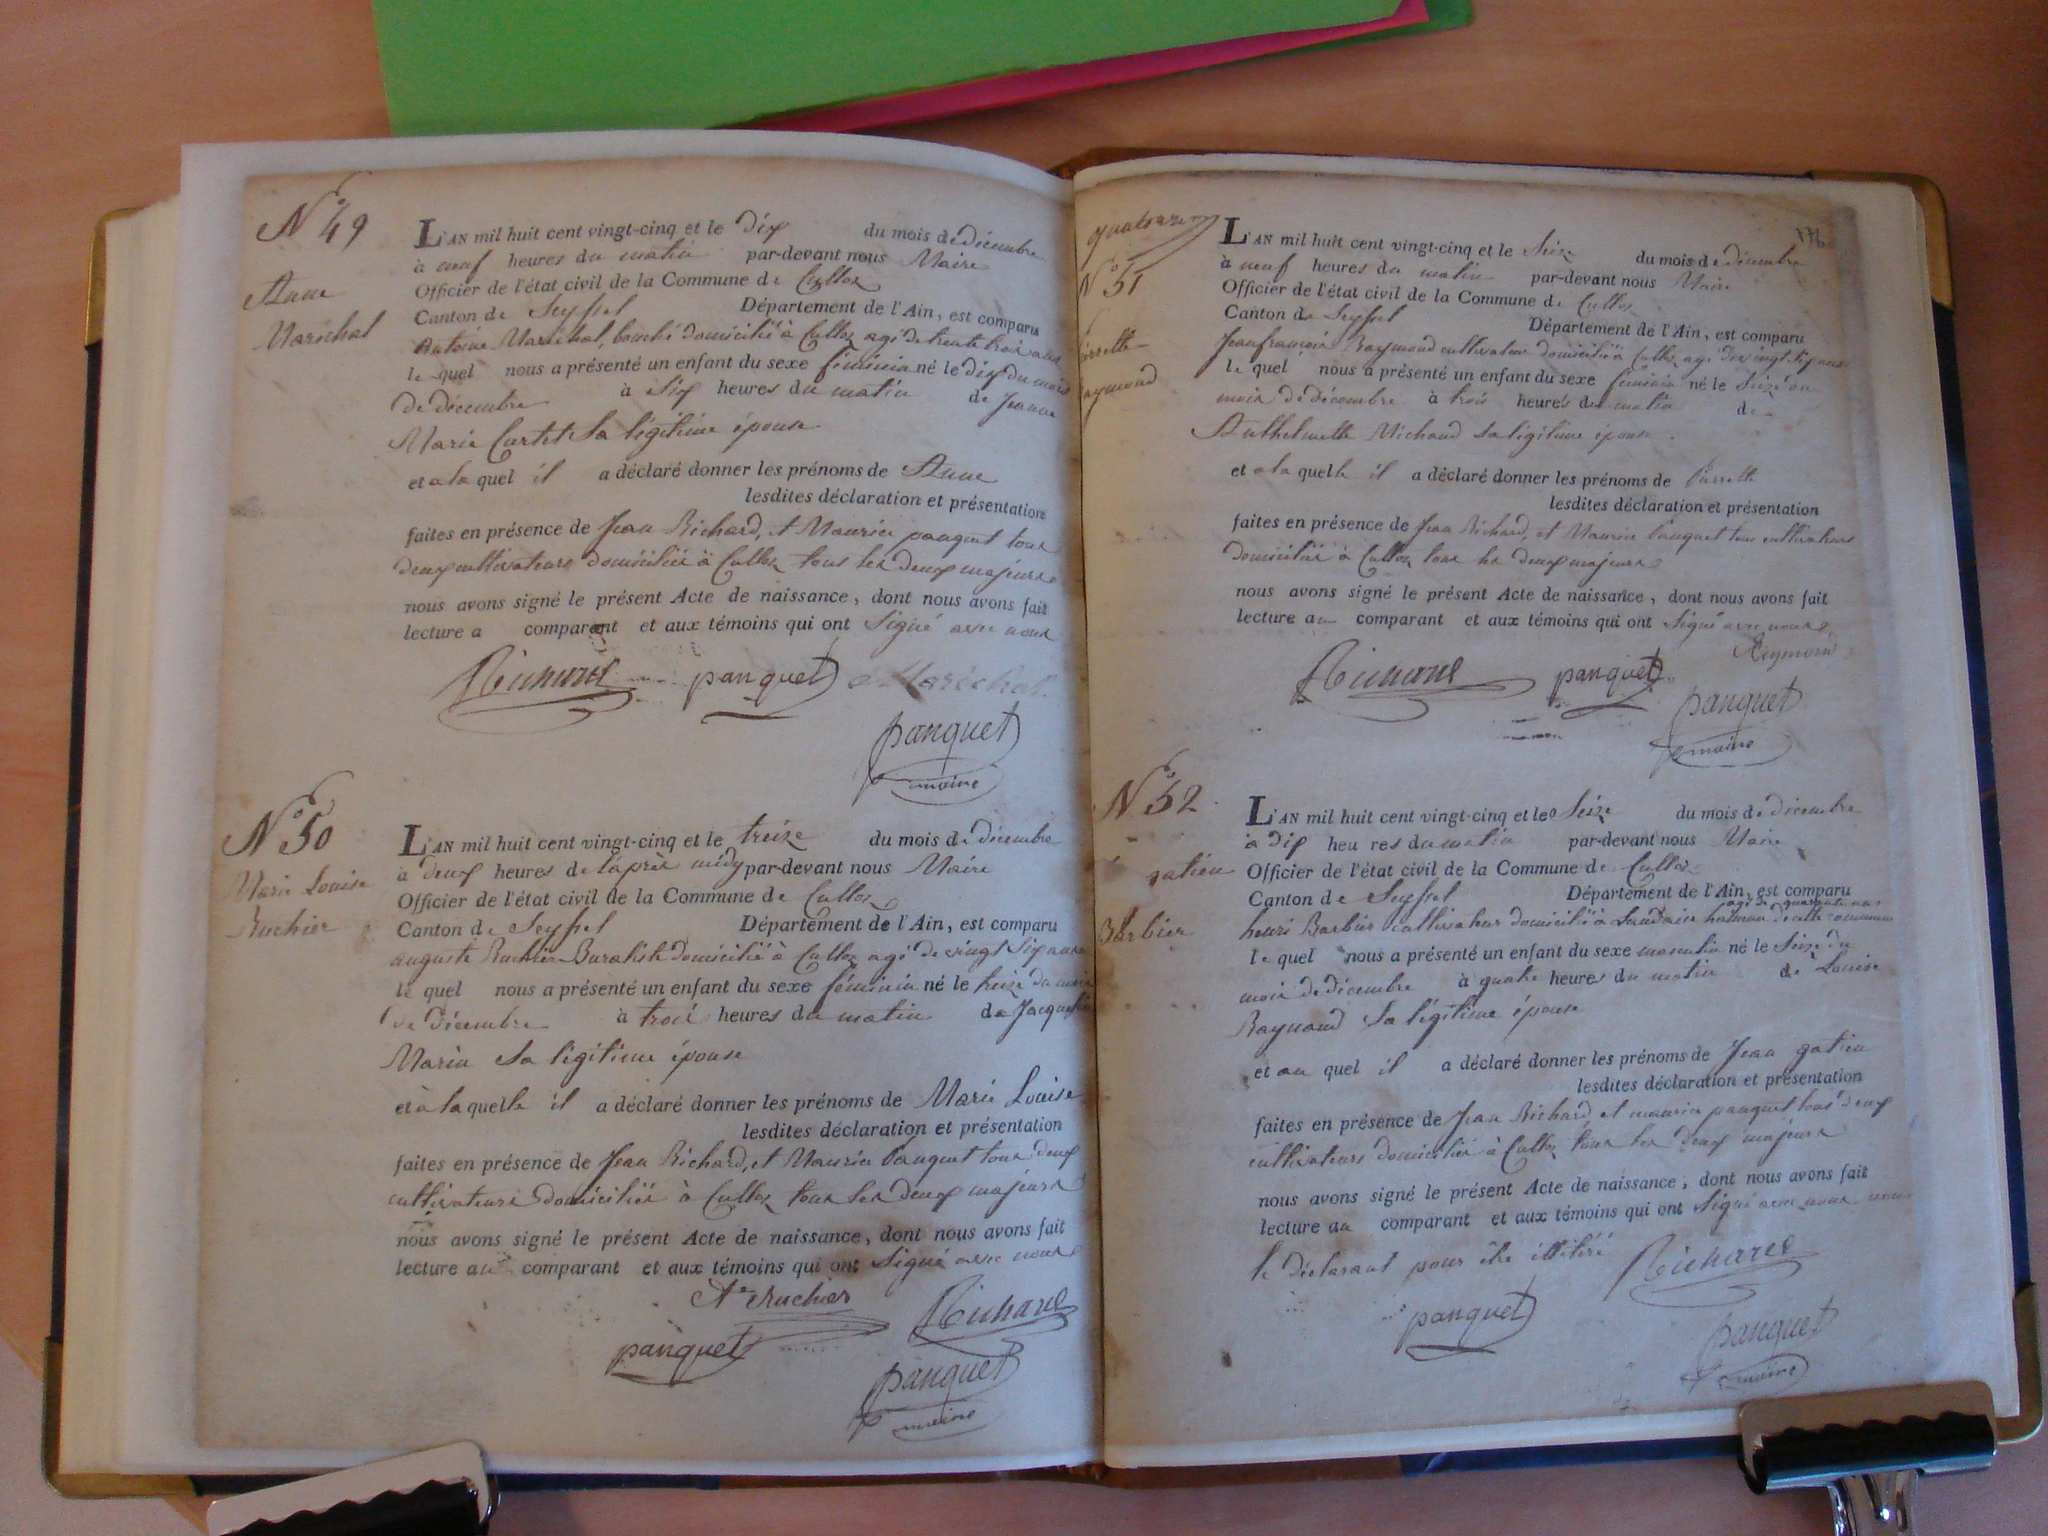 N° 49
Anne
Maréchal
L'AN mil huit cent vingt-cinq et le dix du mois de décembre
à neuf heures du matin par-devant nous Maire
Officier de l'état civil de la Commune de Culloz
Canton de Seyssel Département de l'Ain, est comparu
Antoine Maréchal, bouché domicilié à Culloz agé de trente trois ans
le quel nous a présenté un enfant du sexe féminin né le dix du mois
de décembre à six heures du matin de Jeanne
Marie Cartet sa légitime épouse
et a la quel il a déclaré donner les prénoms de Anne
lesdites déclaration et présentation
faites en présence de Jean Richard, et Maurice panquet tous
deux cultivateurs domiciliés à Culloz tous les deux majeurs
nous avons signé le présent Acte de naissance, dont nous avons fait
lecture a comparant et aux témoins qui ont signé avec nous
Richard panquet Maréchal
panquet
maire
N° 50
Marie Louise
Ruchier
L'AN mil huit cent vingt-cinq et le treize du mois de décembre
à deux heures de l'après midy par-devant nous Maire
Officier de l'état civil de la Commune de Culloz
Canton de Seyssel Département de l'Ain, est comparu
auguste Ruchier Buraliste domicilié à Culloz agé de vingt six ans
le quel nous a présenté un enfant du sexe féminin né le treize du mois
de décembre à trois heures du matin de Jacqueline
Marin sa légitime épouse
et à laquelle il a déclaré donner les prénoms de Marie Louise
lesdites déclaration et présentation
faites en présence de Jean Richard, et Maurice Panquet tous deux
cultivateurs domiciliés à Culloz tous les deux majeurs
nous avons signé le présent Acte de naissance, dont nous avons fait
lecture au comparant et aux témoins qui ont signé avec nous
Ate Ruchier Richard
panquet
panquet
maire
176
N° 51
Pierrette
Raymond
L'AN mil huit cent vingt-cinq et le seize du mois de décembre
à neuf heures du matin par-devant nous Maire
Officier de l'état civil de la Commune de Culloz
Canton de Seyssel Département de l'Ain, est comparu
Jeanfrançois Raymond cultivateur domicilié à Culloz agé de vingt ans
le quel nous a présenté un enfant du sexe féminin né le seize du
mois de décembre à trois heures du matin de
Anthelmette Michaud sa légitime épouse
et a la quelle il a déclaré donner les prénoms de Pierrette
lesdites déclaration et présentation
faites en présence de Jean Richard, et Maurice Panquet tous cultivateurs
domiciliés à Culloz tous les deux majeurs
nous avons signé le présent Acte de naissance, dont nous avons fait
lecture au comparant et aux témoins qui ont signé avec nous
Reymond
Richard panquet
panquet
maire
N° 52
gatien
Barbier
L'AN mil huit cent vingt-cinq et le seize du mois de décembre
à dix heures du matin par-devant nous Maire
Officier de l'état civil de la Commune de Culloz
Canton de Seyssel Département de l'Ain, est comparu
agé de quarante ans
henri Barbier cultivateur domicilié à hameau de cette commune
le quel nous a présenté un enfant du sexe masculin né le seize du
mois de décembre à quatre heures du matin de Louise
Raymond sa légitime épouse
et au quel il a déclaré donner les prénoms de Jean gatien
lesdites déclaration et présentation
faites en présence de Jean Richard et maurice panquet tous deux
cultivateurs domiciliés à Culloz tous les deux majeurs
nous avons signé le présent Acte de naissance, dont nous avons fait
lecture au comparant et aux témoins qui ont signé avec nous
le déclarant pour être illitéré Richard
panquet
panquet
maire